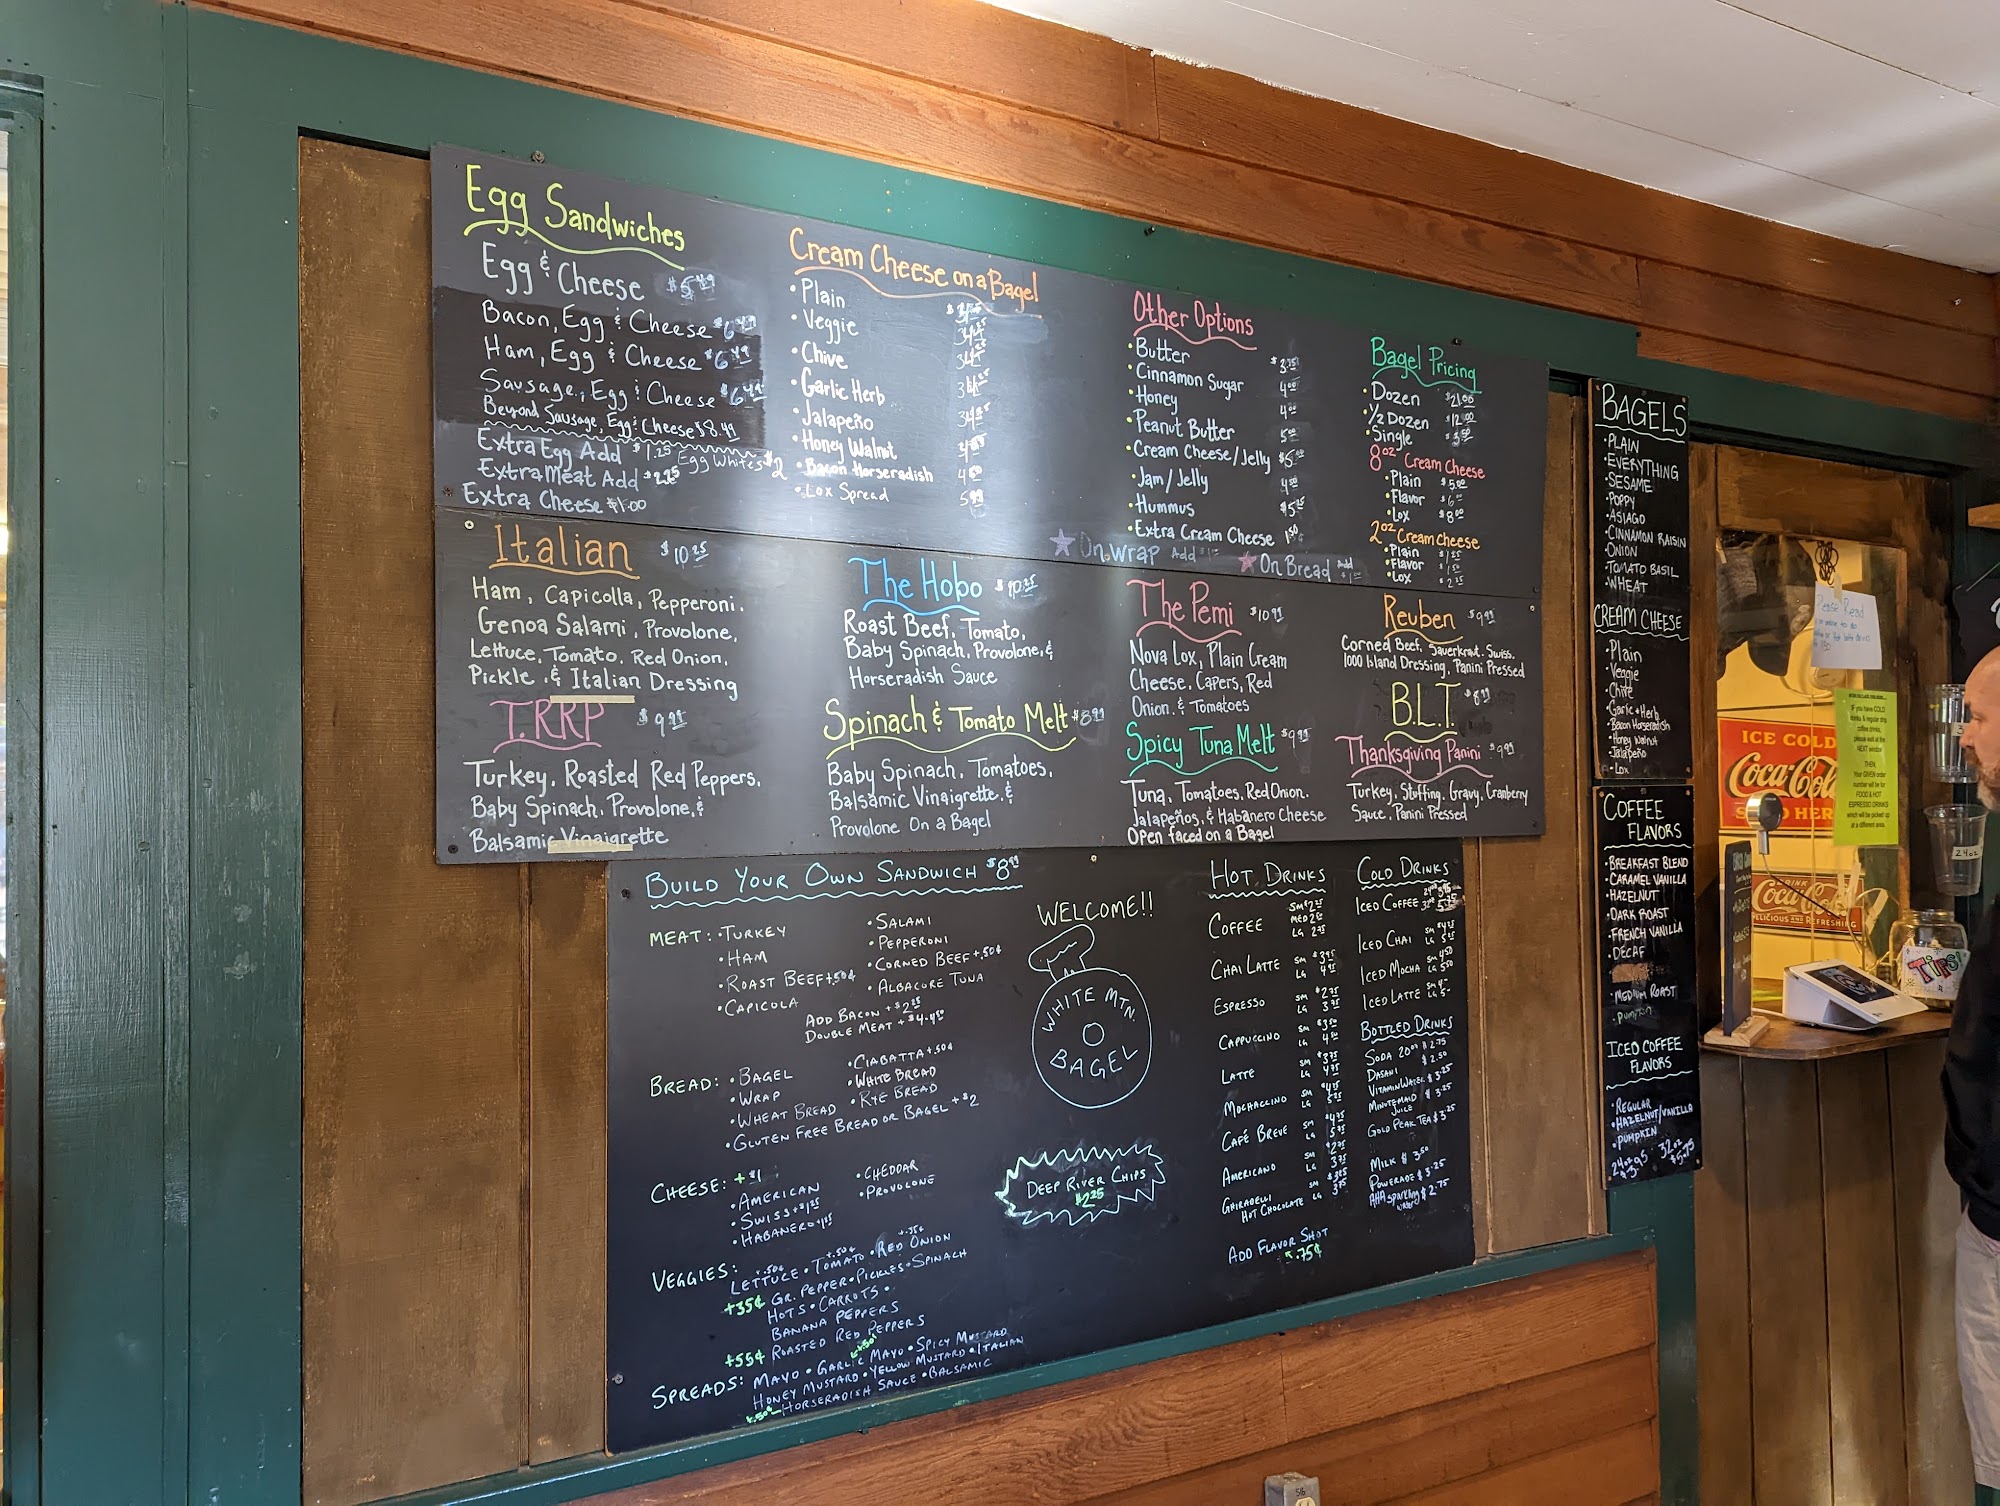 Egg Sandwiches
Egg & Cheese $5.49
Bacon, Egg & Cheese $6.49
Ham, Egg & Cheese $6.49
Sausage, Egg & Cheese $6.49
Beyond Sausage, Egg & Cheese $8.49
Extra Egg Add $1.25 Egg Whites $2
Extra Meat Add $2.25
Extra Cheese $1.00
Cream Cheese on a Bagel
• Plain
• Veggie
• Chive
• Garlic Herb
• Jalapeño
• Honey Walnut
• Bacon Horseradish
• Lox Spread
Other Options
• Butter
• Cinnamon Sugar 4.00
• Honey 4.00
• Peanut Butter 5.00
• Cream Cheese/Jelly $5.00
• Jam/Jelly
• Hummus $5.25
• Extra Cream Cheese 1.50
On Wrap Add
On Bread Add
Bagel Pricing
• Dozen $21.00
• 1/2 Dozen $12.00
• Single
8oz Cream Cheese
• Plain $5.00
• Flavor $6.00
• Lox $8.00
2oz Cream Cheese
• Plain $1.25
• Flavor $1.50
• Lox $2.25
Italian $10.25
Ham, Capicolla, Pepperoni,
Genoa Salami, Provolone,
Lettuce, Tomato, Red Onion,
Pickle, & Italian Dressing
T.R.R.P $9.95
Turkey, Roasted Red Peppers,
Baby Spinach, Provolone, &
Balsamic Vinaigrette
The Hobo $10.25
Roast Beef, Tomato,
Baby Spinach, Provolone, &
Horseradish Sauce
Spinach & Tomato Melt $8.99
Baby Spinach, Tomatoes,
Balsamic Vinaigrette, &
Provolone On a Bagel
The Pemi $10.99
Nova Lox, Plain Cream
Cheese, Capers, Red
Onion, & Tomatoes
Spicy Tuna Melt $9.99
Tuna, Tomatoes, Red Onion,
Jalapeños, & Habanero Cheese
Open faced on a Bagel
Reuben $9.99
Corned Beef, Sauerkraut, Swiss,
1000 Island Dressing, Panini Pressed
B.L.T. $8.99
Thanksgiving Panini $9.99
Turkey, Stuffing, Gravy, Cranberry
Sauce, Panini Pressed
BUILD YOUR OWN SANDWICH $8.99
MEAT: • TURKEY
• HAM
• ROAST BEEF +.50¢
• CAPICOLA
• SALAMI
• PEPPERONI
• CORNED BEEF +.50¢
• ALBACORE TUNA
ADD BACON + $2.25
DOUBLE MEAT + $4.50
BREAD: • BAGEL
• WRAP
• WHEAT BREAD
• GLUTEN FREE BREAD OR BAGEL + $2
• CIABATTA +.50¢
• WHITE BREAD
• RYE BREAD
CHEESE: + $1
• AMERICAN
• SWISS
• HABANERO
• CHEDDAR
• PROVOLONE
VEGGIES: LETTUCE • TOMATO • RED ONION
+35¢ GR. PEPPER • PICKLES • SPINACH
HOTS • CARROTS •
BANANA PEPPERS
+55¢ ROASTED RED PEPPERS
SPREADS: MAYO • GARLIC MAYO • SPICY MUSTARD
HONEY MUSTARD • YELLOW MUSTARD • ITALIAN
HORSERADISH SAUCE • BALSAMIC
WELCOME!!
WHITE MTN.
BAGEL
DEEP RIVER CHIPS
$2.25
HOT DRINKS
COFFEE
CHAI LATTE SM $3.95
LG 4.95
ESPRESSO SM $2.75
LG 3.75
CAPPUCCINO SM $3.50
LG 4.50
LATTE SM $3.75
LG 4.75
MOCHACCINO SM $4.75
LG 5.75
CAFÉ BREVE SM $4.75
LG 5.75
AMERICANO SM $2.75
LG 3.75
GHIRADELLI
HOT CHOCOLATE
ADD FLAVOR SHOT
.75¢
COLD DRINKS
ICED COFFEE
ICED CHAI
ICED MOCHA SM 4.50
LG 5.50
ICED LATTE
BOTTLED DRINKS
SODA 20oz $2.75
DASANI $2.50
VITAMINWATER $3.25
MINUTEMAID $3.25
JUICE
GOLD PEAK TEA $3.25
MILK $3.50
POWERADE $3.25
AHA sparkling $2.75
water
BAGELS
• PLAIN
• EVERYTHING
• SESAME
• POPPY
• ASIAGO
• CINNAMON RAISIN
• ONION
• TOMATO BASIL
• WHEAT
CREAM CHEESE
• Plain
• Veggie
• Chive
• Garlic + Herb
• Bacon Horseradish
• Honey Walnut
• Jalapeño
• Lox
COFFEE
FLAVORS
• BREAKFAST BLEND
• CARAMEL VANILLA
• HAZELNUT
• DARK ROAST
• FRENCH VANILLA
• DECAF
• MEDIUM ROAST
• PUMPKIN
ICED COFFEE
FLAVORS
• REGULAR
• HAZELNUT/VANILLA
• PUMPKIN
24oz 32oz
$3.95 $5.75
Please Read
ICE COLD
Coca-Cola
If you have COLD
drinks & regular drip
coffee drinks,
please wait at the
NEXT window
THEN,
Your GIVEN order
number will be for
FOOD & HOT
ESPRESSO DRINKS
which will be picked up
at a different area.
DRINK
Coca-Cola
DELICIOUS AND REFRESHING
24oz
TIPS!